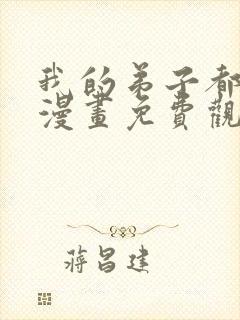 我的弟子都
漫畫免費觀
蔣昌建